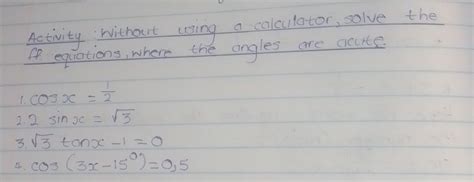 Activity: Without using a calculator, solve the
ff equations, where the angles are acute
1. cos x = 1/2
2. 2 sin x = √3
3. √3 tan x - 1 = 0
4. cos (3x - 15⁰) = 0,5